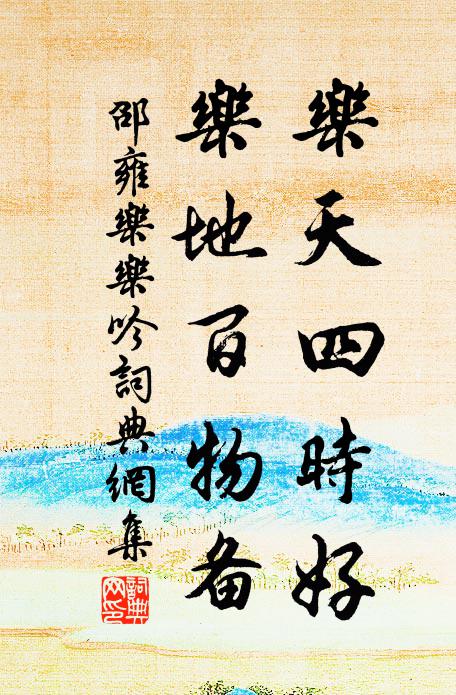 樂天四時好
樂地百物备
邵雍樂樂吟詞典網集
詞典网印